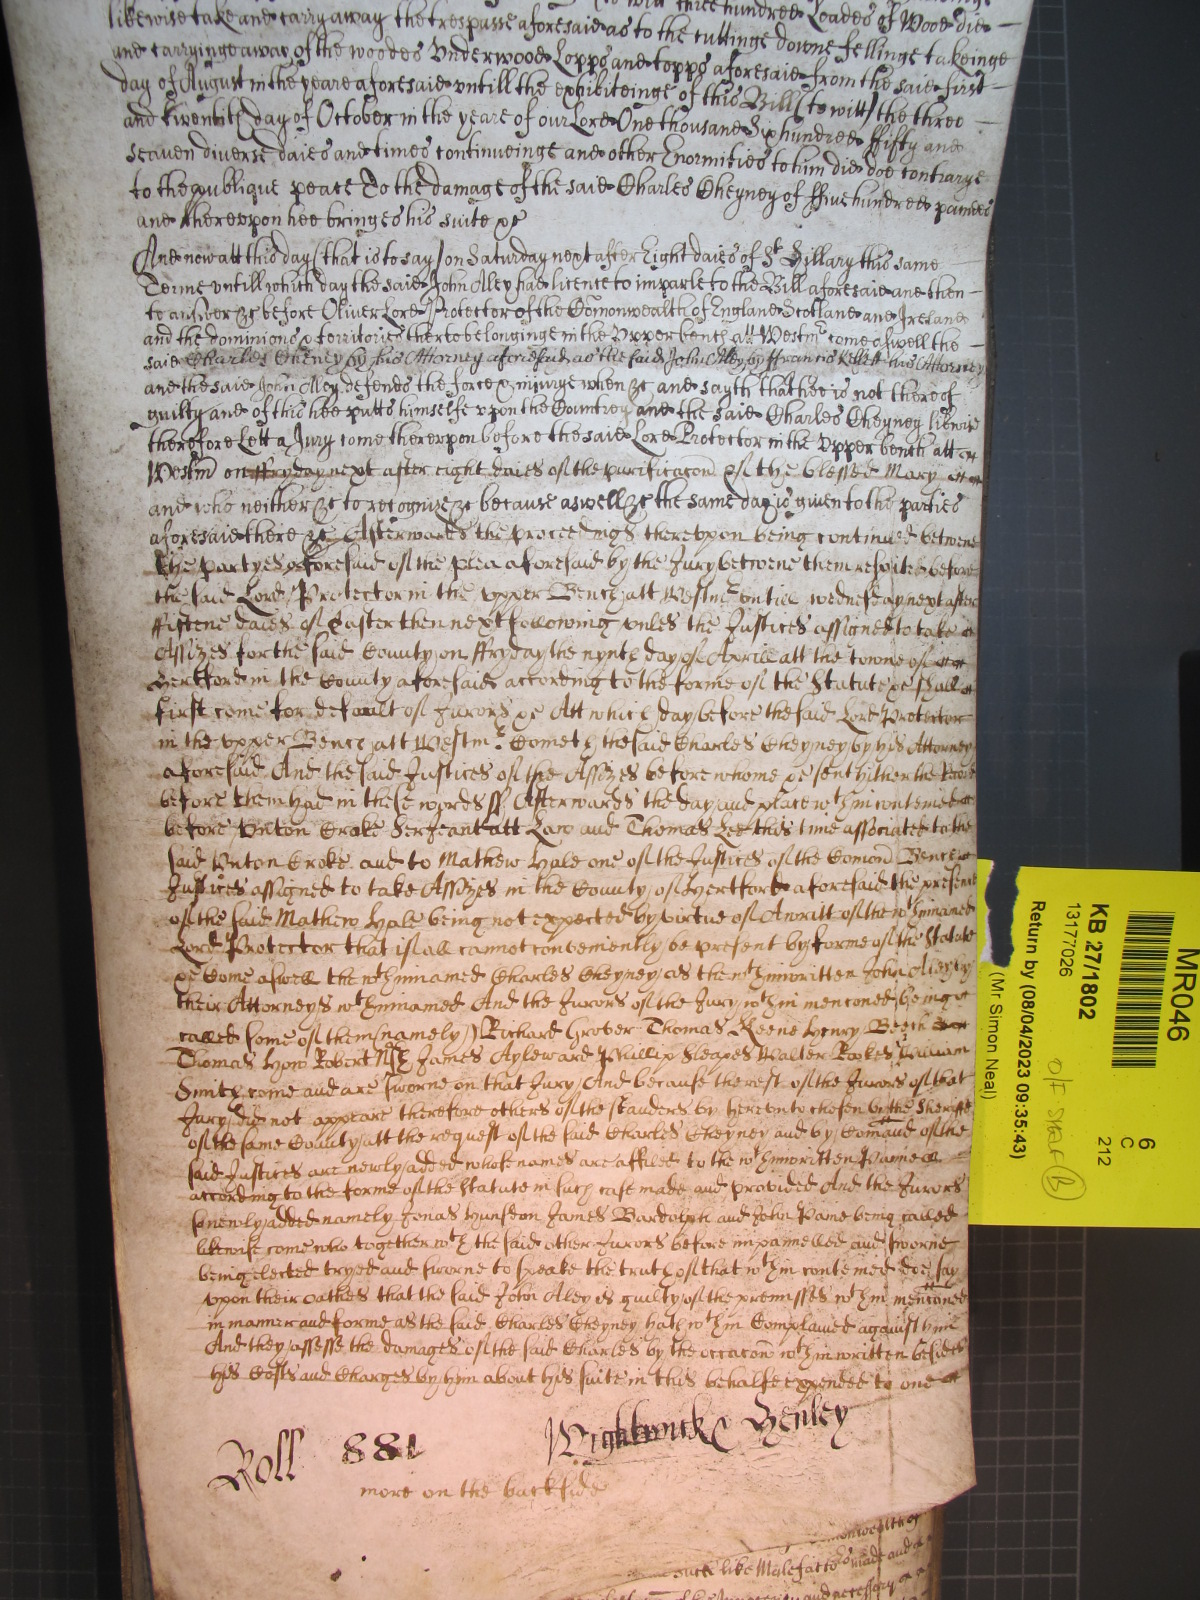 likewise take and carry away the trespasse aforesaid as to the cuttinge downe fellinge takeinge
and carryinge away of the woodes Underwood Lopps and topps aforesaid from the said first
day of August in the yeare aforesaid untill the exhibiteinge of this Bill (to witt) the three
and twentith day of October in the yeare of our Lord One thousand Six hundred ffifty and
seaven diverse daies and times continueinge and other Enormities to him did doe contrarye
to the publique peace To the damage of the said Charles Cheyney of ffive hundred pounds
and thereupon hee bringes his suite &c
And now att this day (that is to say) on Saturday next after Eight daies of St Hillary this same
Terme untill which day the said John Aley had licence to imparle to the Bill aforesaid and then
to answer &c before Oliver Lord Protector of the Comonwealth of England Scotland and Ireland
and the dominions & territories thereto belonginge in the Upper bench att Westmr come aswell the
said Charles Cheney by his Attorney aforesaid as the said John Aley by ffrancis Kellett his Attorney
and the said John Aley defends the force & injurye when &c and sayth that hee is not thereof
guilty and of this hee putts himselfe upon the Countrey and the said Charles Cheyney likewise
therefore Lett a Jury come thereupon before the said Lord Protector in the Upper bench att
Westmr on ffryday next after eight daies of the purificacon of the blessed Mary
and who neither &c to recognize &c because aswell &c the same day is given to the parties
aforesaid there &c Afterwards the proceedings thereupon being continued betweene
the partyes aforesaid of the plea aforesaid by the Jury betweene them respited before
the said Lord Protector in the upper Bench att Westmr untill wednesday next after
ffifteene daies of Easter then next following unles the Justices assigned to take
Assizes for the said County on ffryday the nynth day of Aprill att the towne of
Hertford in the County aforesaid according to the forme of the Statute &c shall
first come for default of Jurors &c Att which day before the said Lord Protector
in the upper Bench att Westmr Cometh the said Charles Cheyney by his Attorney
aforesaid And the said Justices of the Assizes before whome &c sent hither the Record
before them had in these words ss Afterwards the day and place wthin conteined
before Unton Croke Serjeant att Law and Thomas Lee this time associated to the
said Unton Croke and to Mathew Hale one of the Justices of the Comon Bench
Justices assigned to take Assizes in the County of Hertford aforesaid the presence
of the said Mathew Hale being not expected by virtue of A writt of the wthinnamed
Lord Protector that if all cannot conveniently be present by forme of the Statute
&c Come aswell the wthinnamed Charles Cheyney as the wthinwritten John Aley by
their Attorneys wthinnamed And the Jurors of the Jury wthin mencioned being
called some of them (namely) Richard Grover Thomas Keene Henry Beech
Thomas How Robert James Ayleward Phillip Sleapes Walter Rookes William
Smith come and are sworne on that Jury And because the rest of the Jurors of that
Jury did not appeare therefore others of the standers by hereunto chosen by the Sheriffe
of the same County att the request of the said Charles Cheyney and by Comaund of the
said Justices are newly added whose names are affiled to the wthinwritten Pannell
according to the forme of the Statute in such case made and provided And the Jurors
so newly added namely Jonas Hunsdon James Bardolph and John Pame being called
likewise come who together wth the said other Jurors before impannelled and sworne
being elected tryed and sworne to speake the truth of that wthin conteined doe say
upon their oathes that the said John Aley is guilty of the premisses wthin mencioned
in manner and forme as the said Charles Cheyney hath wthin Complained against him
And they assesse the damages of the said Charles by the occacon wthinwritten besides
his Costs and Charges by him about his suite in this behalfe expended to one
Roll 881 Wightwick & Henley
more on the backside
such like Malefactors made and
MR046
KB 27/1802
13177026
Return by (08/04/2023 09:35:43)
(Mr Simon Neal)
6
C
212